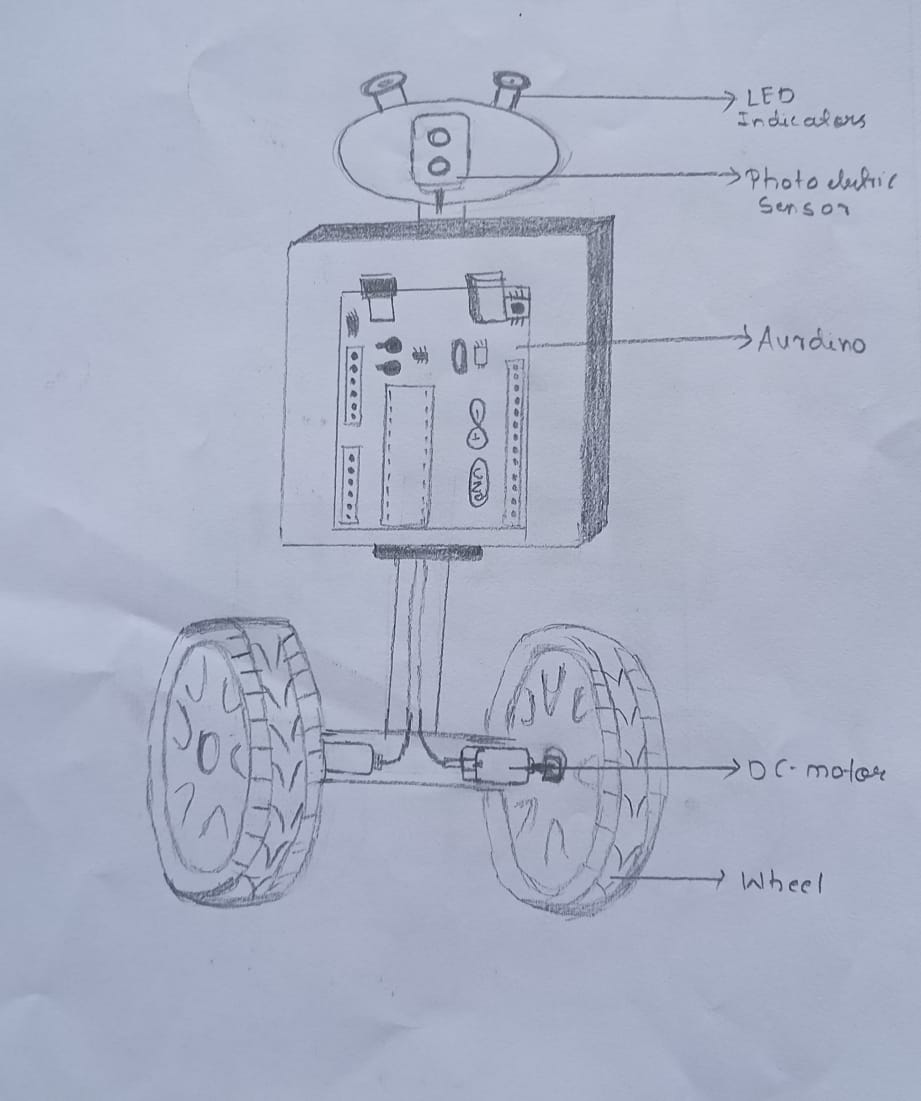 LED
Indicators
Photo electric
Sensor
Aurdino
UNO
DC-motor
Wheel